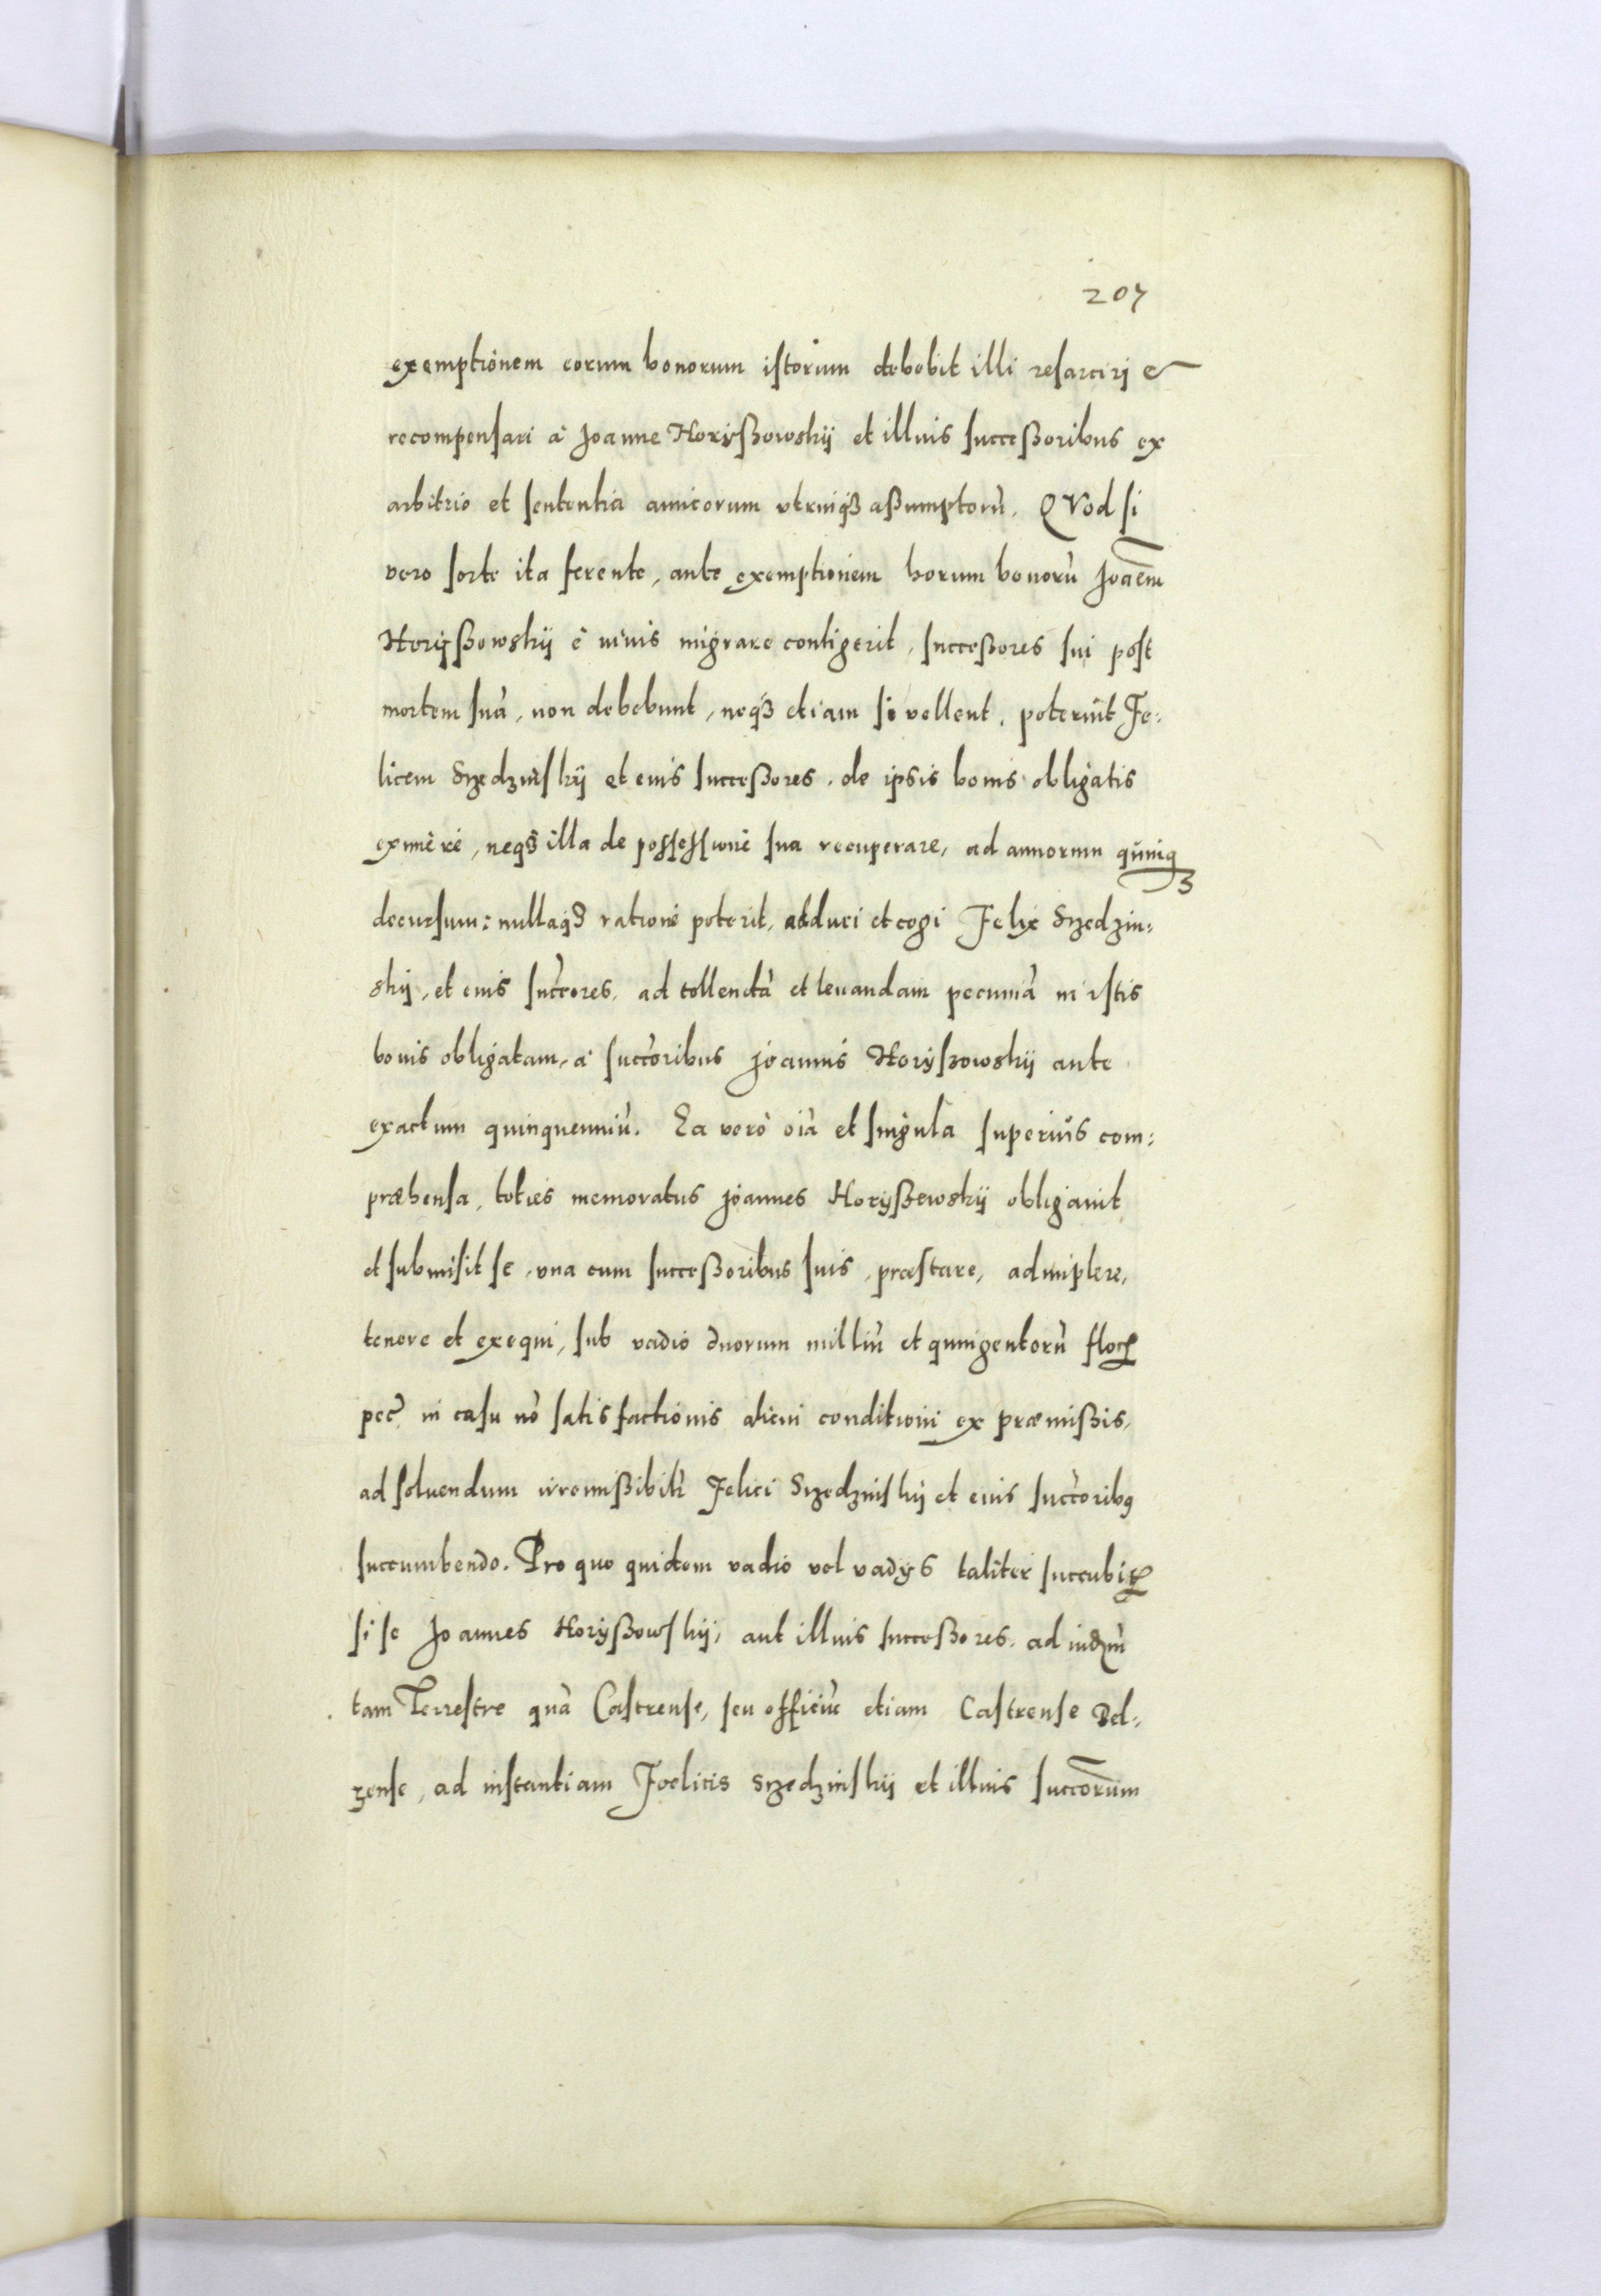 207
exemptionem eorum bonorum istorum debebit illi resarcirj et
recompensari à Joanne Horÿßowskÿ et illius succeßoribus ex
arbitrio et sententia amicorum vtriusqȝ aßumptorũ. QVod si
vero sorte ita ferente, ante exemptionem horum bonorũ Joãem
Horÿßowskÿ è uiuis migrare contigerit, succeßores sui post
mortem suã, non debebunt, neqȝ etiam si vellent, poterũt Fe:
licem Szedzinskÿ et eius succeßores, de ipsis bonis obligatis
eximere, neqȝ illa de possessione sua recuperare, ad annorum quinqȝ
decursum: nullaqȝ ratione poterit, adduci et cogi Felix Szedzin:
skÿ, et eius succores, ad tollendã et leuandam pecuniã in istis
bonis obligatam, à succoribus Joannis Horÿszowskÿ ante
exactum quinquenniũ. Ea verò oĩa et singula superius com:
præhensa, toties memoratus Joannes Horÿßewskÿ obligauit
et submisit se, vna cum succeßoribus suis, præstare, adimplere,
tenere et exequi, sub vadio duorum milliũ et quingentorũ floꝝ
pec̃ in casu nõ satisfactionis alicui conditioni ex præmißis,
ad soluendum irremißibilr̃ Felici Szedzinskÿ et eius succoribꝰ
succumbendo. Pro quo quidem vadio vel vadÿs taliter succubiꝝ
si se Joannes Horÿßowskÿ, aut illius succeßores, ad iudm̃
tam Terrestre quã Castrense, seu officiũ etiam Castrense Bel:
zense, ad instantiam Foelicis Szedzinskÿ et illius succorum